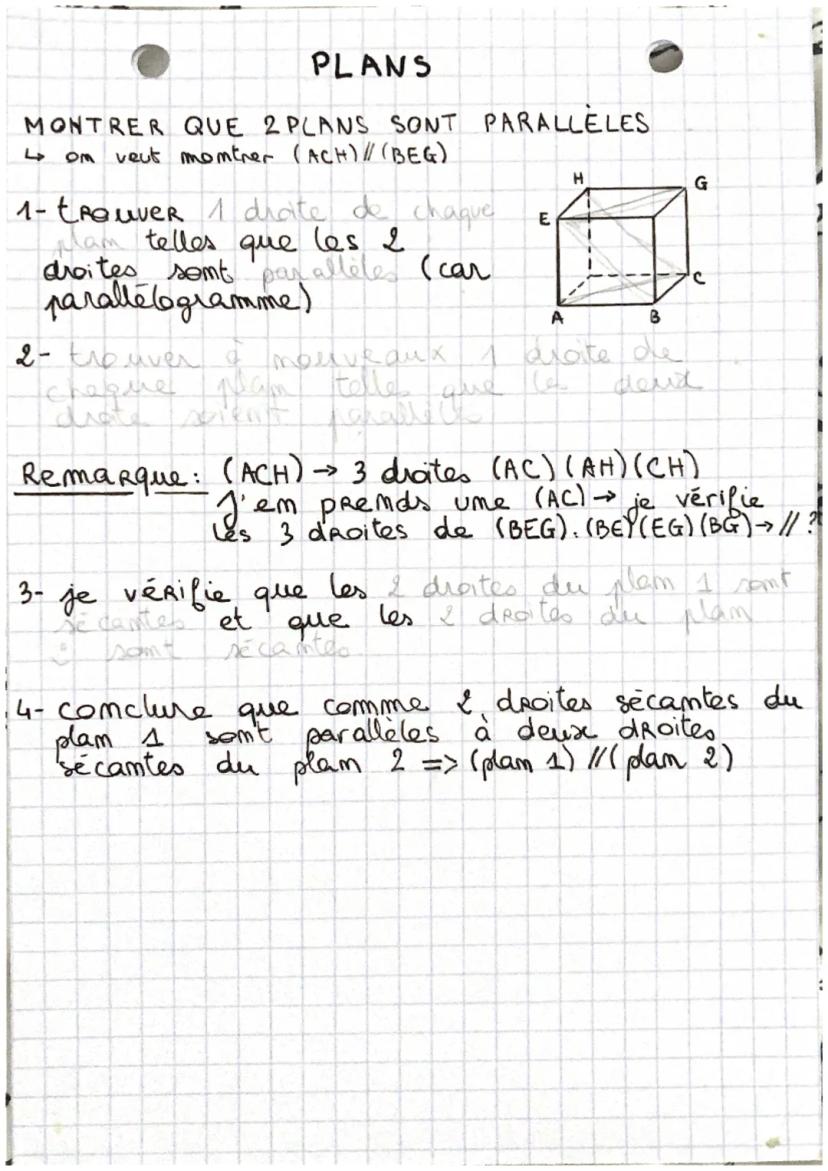 PLANS
MONTRER QUE 2 PLANS SONT PARALLÈLES
↳ on veut montrer (ACH) // (BEG)
H
G
E
1- trouver 1 droite de chaque
plan telles que les 2
droites sont parallèles (car
parallélogramme)
C
A
B
2- trouver à nouveaux 1 droite de
chaque plan telles que les deux
droite soient parallèles
Remarque : (ACH) → 3 droites (AC) (AH) (CH)
J'en prends une (AC) → je vérifie
les 3 droites de (BEG). (BE) (EG) (BG) → // ?
3- je vérifie que les 2 droites du plan 1 sont
sécantes et que les 2 droites du plan
sont sécantes
4- conclure que comme 2 droites sécantes du
plan 1 sont parallèles à deux droites
sécantes du plan 2 => (plan 1) // (plan 2)